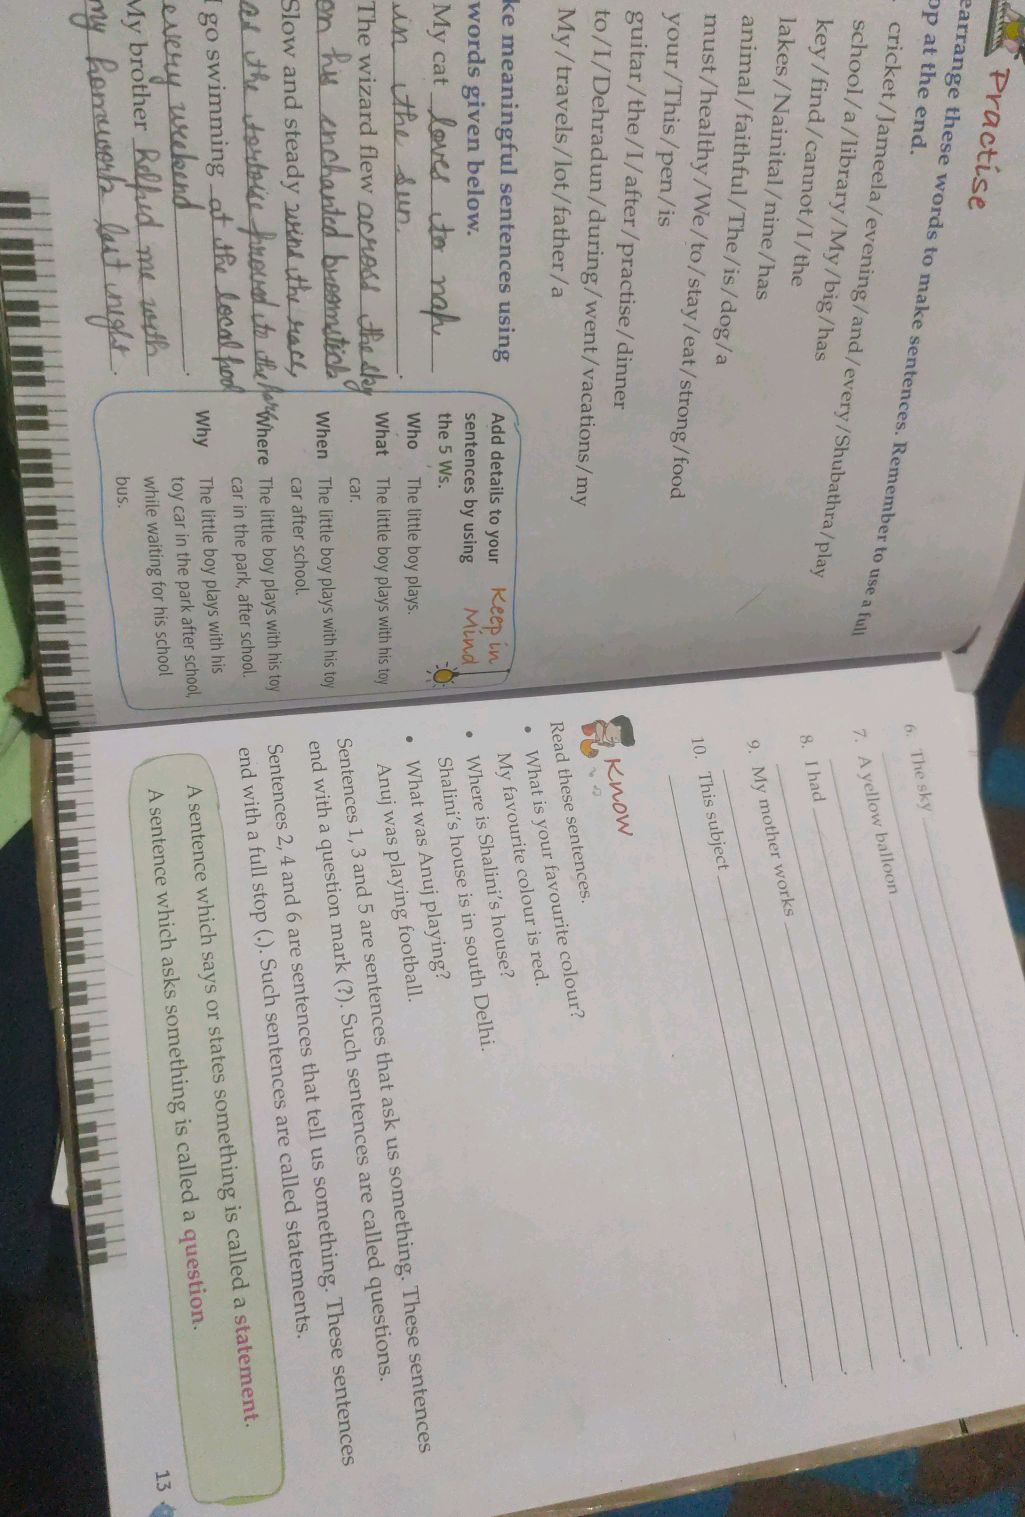 Practise
earrange these words to make sentences. Remember to use a full
op at the end.
cricket/Jameela/evening/and/every/Shubathra/play
school/a/library/My/big/has
key/find/cannot/I/the
lakes/Nainital/nine/has
animal/faithful/The/is/dog/a
must/healthy/We/to/stay/eat/strong/food
your/This/pen/is
guitar/the/I/after/practise/dinner
to/I/Dehradun/during/went/vacations/my
My/travels/lot/father/a
ke meaningful sentences using
words given below.
My cat loves to nap
in the sun.
The wizard flew across the sky
on his enchanted broomstick
Slow and steady wins the race,
as the tortoise proved to the
I go swimming at the local pool
every weekend.
My brother helped me with
my homework last night.
Keep in
Mind
Add details to your
sentences by using
the 5 Ws.
Who The little boy plays.
What The little boy plays with his toy
car.
When The little boy plays with his toy
car after school.
Where The little boy plays with his toy
car in the park, after school.
Why The little boy plays with his
toy car in the park after school,
while waiting for his school
bus.
6. The sky .
7. A yellow balloon .
8. I had .
9. My mother works .
10. This subject .
Know
Read these sentences.
• What is your favourite colour?
My favourite colour is red.
• Where is Shalini's house?
Shalini's house is in south Delhi.
• What was Anuj playing?
Anuj was playing football.
Sentences 1, 3 and 5 are sentences that ask us something. These sentences
end with a question mark (?). Such sentences are called questions.
Sentences 2, 4 and 6 are sentences that tell us something. These sentences
end with a full stop (.). Such sentences are called statements.
A sentence which says or states something is called a statement.
A sentence which asks something is called a question.
13